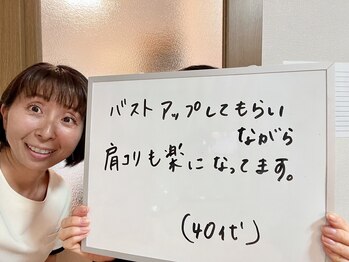 バストアップしてもらい
ながら
肩コリも楽になってます。
(40代)